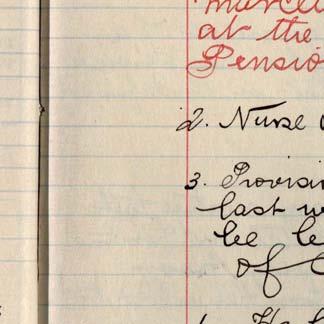 at the
Pensio
2. Nurse
3. Provisi
last w
be le
of